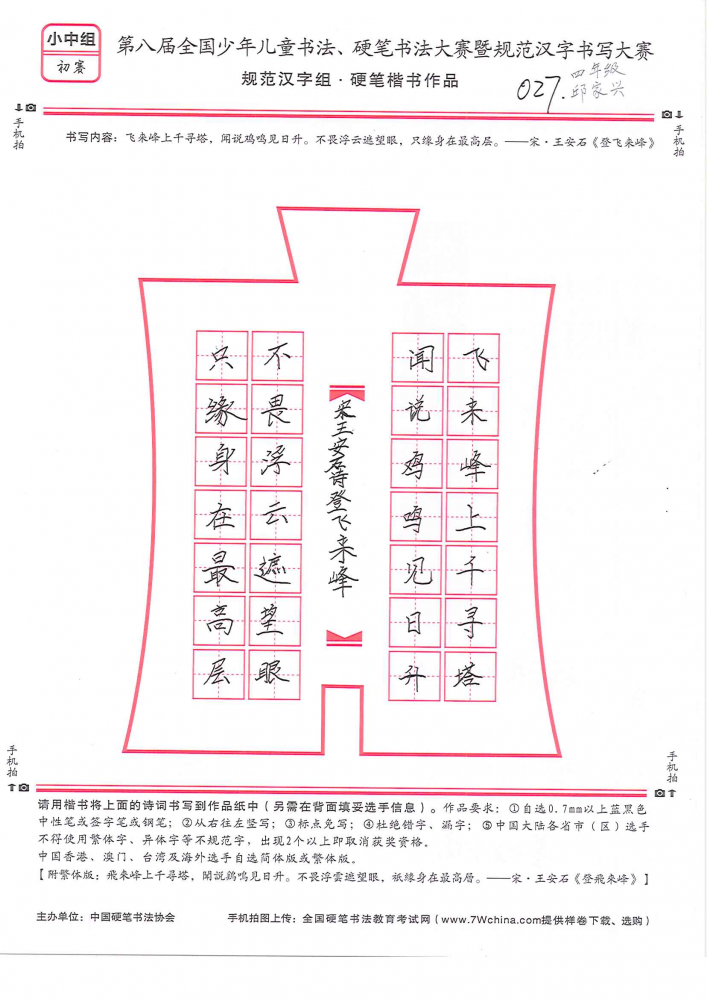 小中组
初赛
第八届全国少年儿童书法、硬笔书法大赛暨规范汉字书写大赛
规范汉字组·硬笔楷书作品
027.
四年级
邱家兴
手机拍
手机拍
书写内容：飞来峰上千寻塔，闻说鸡鸣见日升。不畏浮云遮望眼，只缘身在最高层。——宋·王安石《登飞来峰》
飞来峰上千寻塔
闻说鸡鸣见日升
宋王安石诗登飞来峰
不畏浮云遮望眼
只缘身在最高层
手机拍
手机拍
请用楷书将上面的诗词书写到作品纸中（另需在背面填妥选手信息）。作品要求：①自选0.7mm以上蓝黑色
中性笔或签字笔或钢笔；②从右往左竖写；③标点免写；④杜绝错字、漏字；⑤中国大陆各省市（区）选手
不得使用繁体字、异体字等不规范字，出现2个以上即取消获奖资格。
中国香港、澳门、台湾及海外选手自选简体版或繁体版。
【附繁体版：飛來峰上千尋塔，聞說鷄鳴見日升。不畏浮雲遮望眼，祇緣身在最高層。——宋·王安石《登飛來峰》】
主办单位：中国硬笔书法协会
手机拍图上传：全国硬笔书法教育考试网（www.7Wchina.com提供样卷下载、选购）